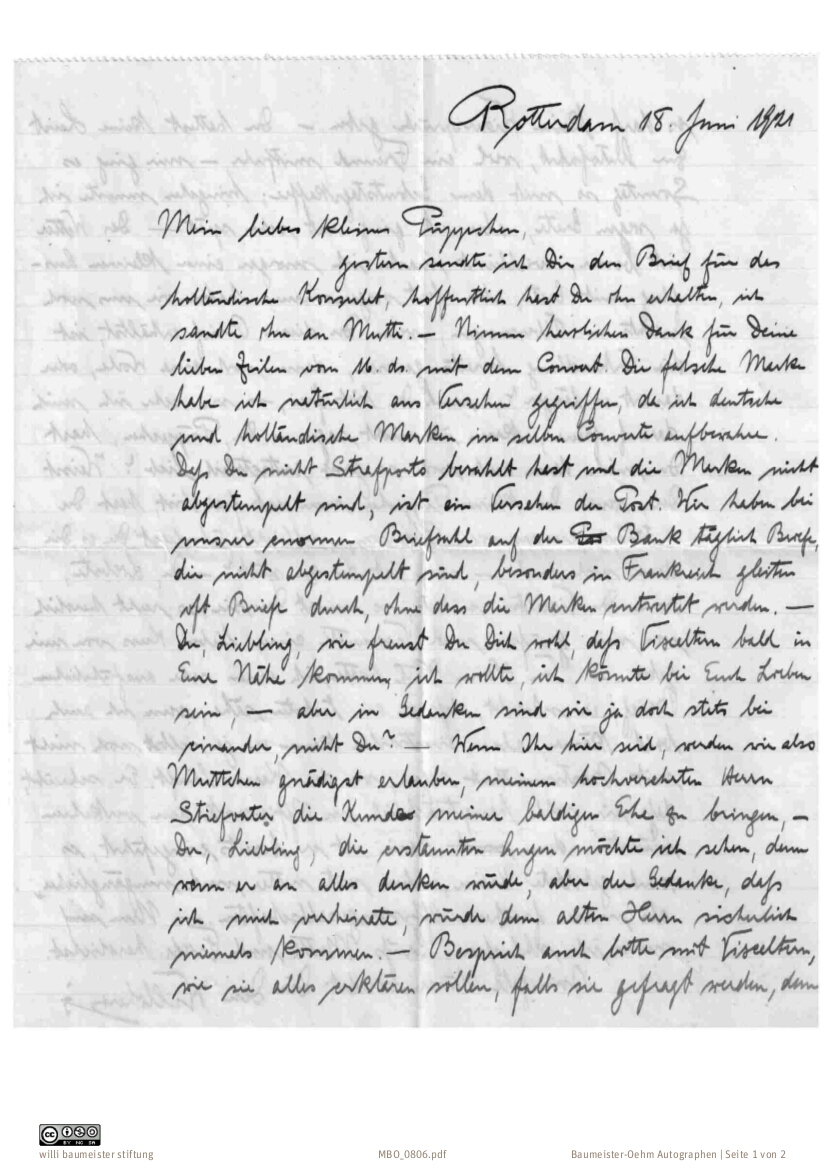 Rotterdam 18. Juni 1921
Mein liebes kleines Püppchen,
gestern sandte ich Dir den Brief für das
holländische Konsulat, hoffentlich hast Du ihn erhalten, ich
sandte ihn an Mutti. — Nimm herzlichen Dank für Deine
lieben Zeilen vom 16. ds. mit dem Couvert. Die falsche Marke
habe ich natürlich aus Versehen gegriffen, da ich deutsche
und holländische Marken im selben Couverte aufbewahre.
Daß Du nicht Strafporto bezahlt hast und die Marken nicht
abgestempelt sind, ist ein Versehen der Post. Wir haben bei
unsrer enormen Briefzahl auf der Bank täglich Briefe,
die nicht abgestempelt sind, besonders in Frankreich gleiten
oft Briefe durch, ohne dass die Marken entwertet werden. —
Du, Liebling, wie freust Du Dich wohl, daß Visceltern bald in
Eure Nähe kommen, ich wollte, ich könnte bei Euch Lieben
sein, — aber in Gedanken sind wir ja doch stets bei
einander, nicht Du? — Wenn Ihr hier seid, werden wir also
Muttchen gnädigst erlauben, meinem hochverehrten Herrn
Stiefvater die Kunde meiner baldigen Ehe zu bringen, —
Du, Liebling, die erstaunten Augen möchte ich sehen, denn
wenn er an alles denken würde, aber der Gedanke, daß
ich mich verheirate, würde dem alten Herrn sicherlich
niemals kommen. — Besprich auch bitte mit Visceltern,
wie sie alles erklären sollen, falls sie gefragt werden, denn
willi baumeister stiftung
MBO_0806.pdf
Baumeister-Oehm Autographen | Seite 1 von 2